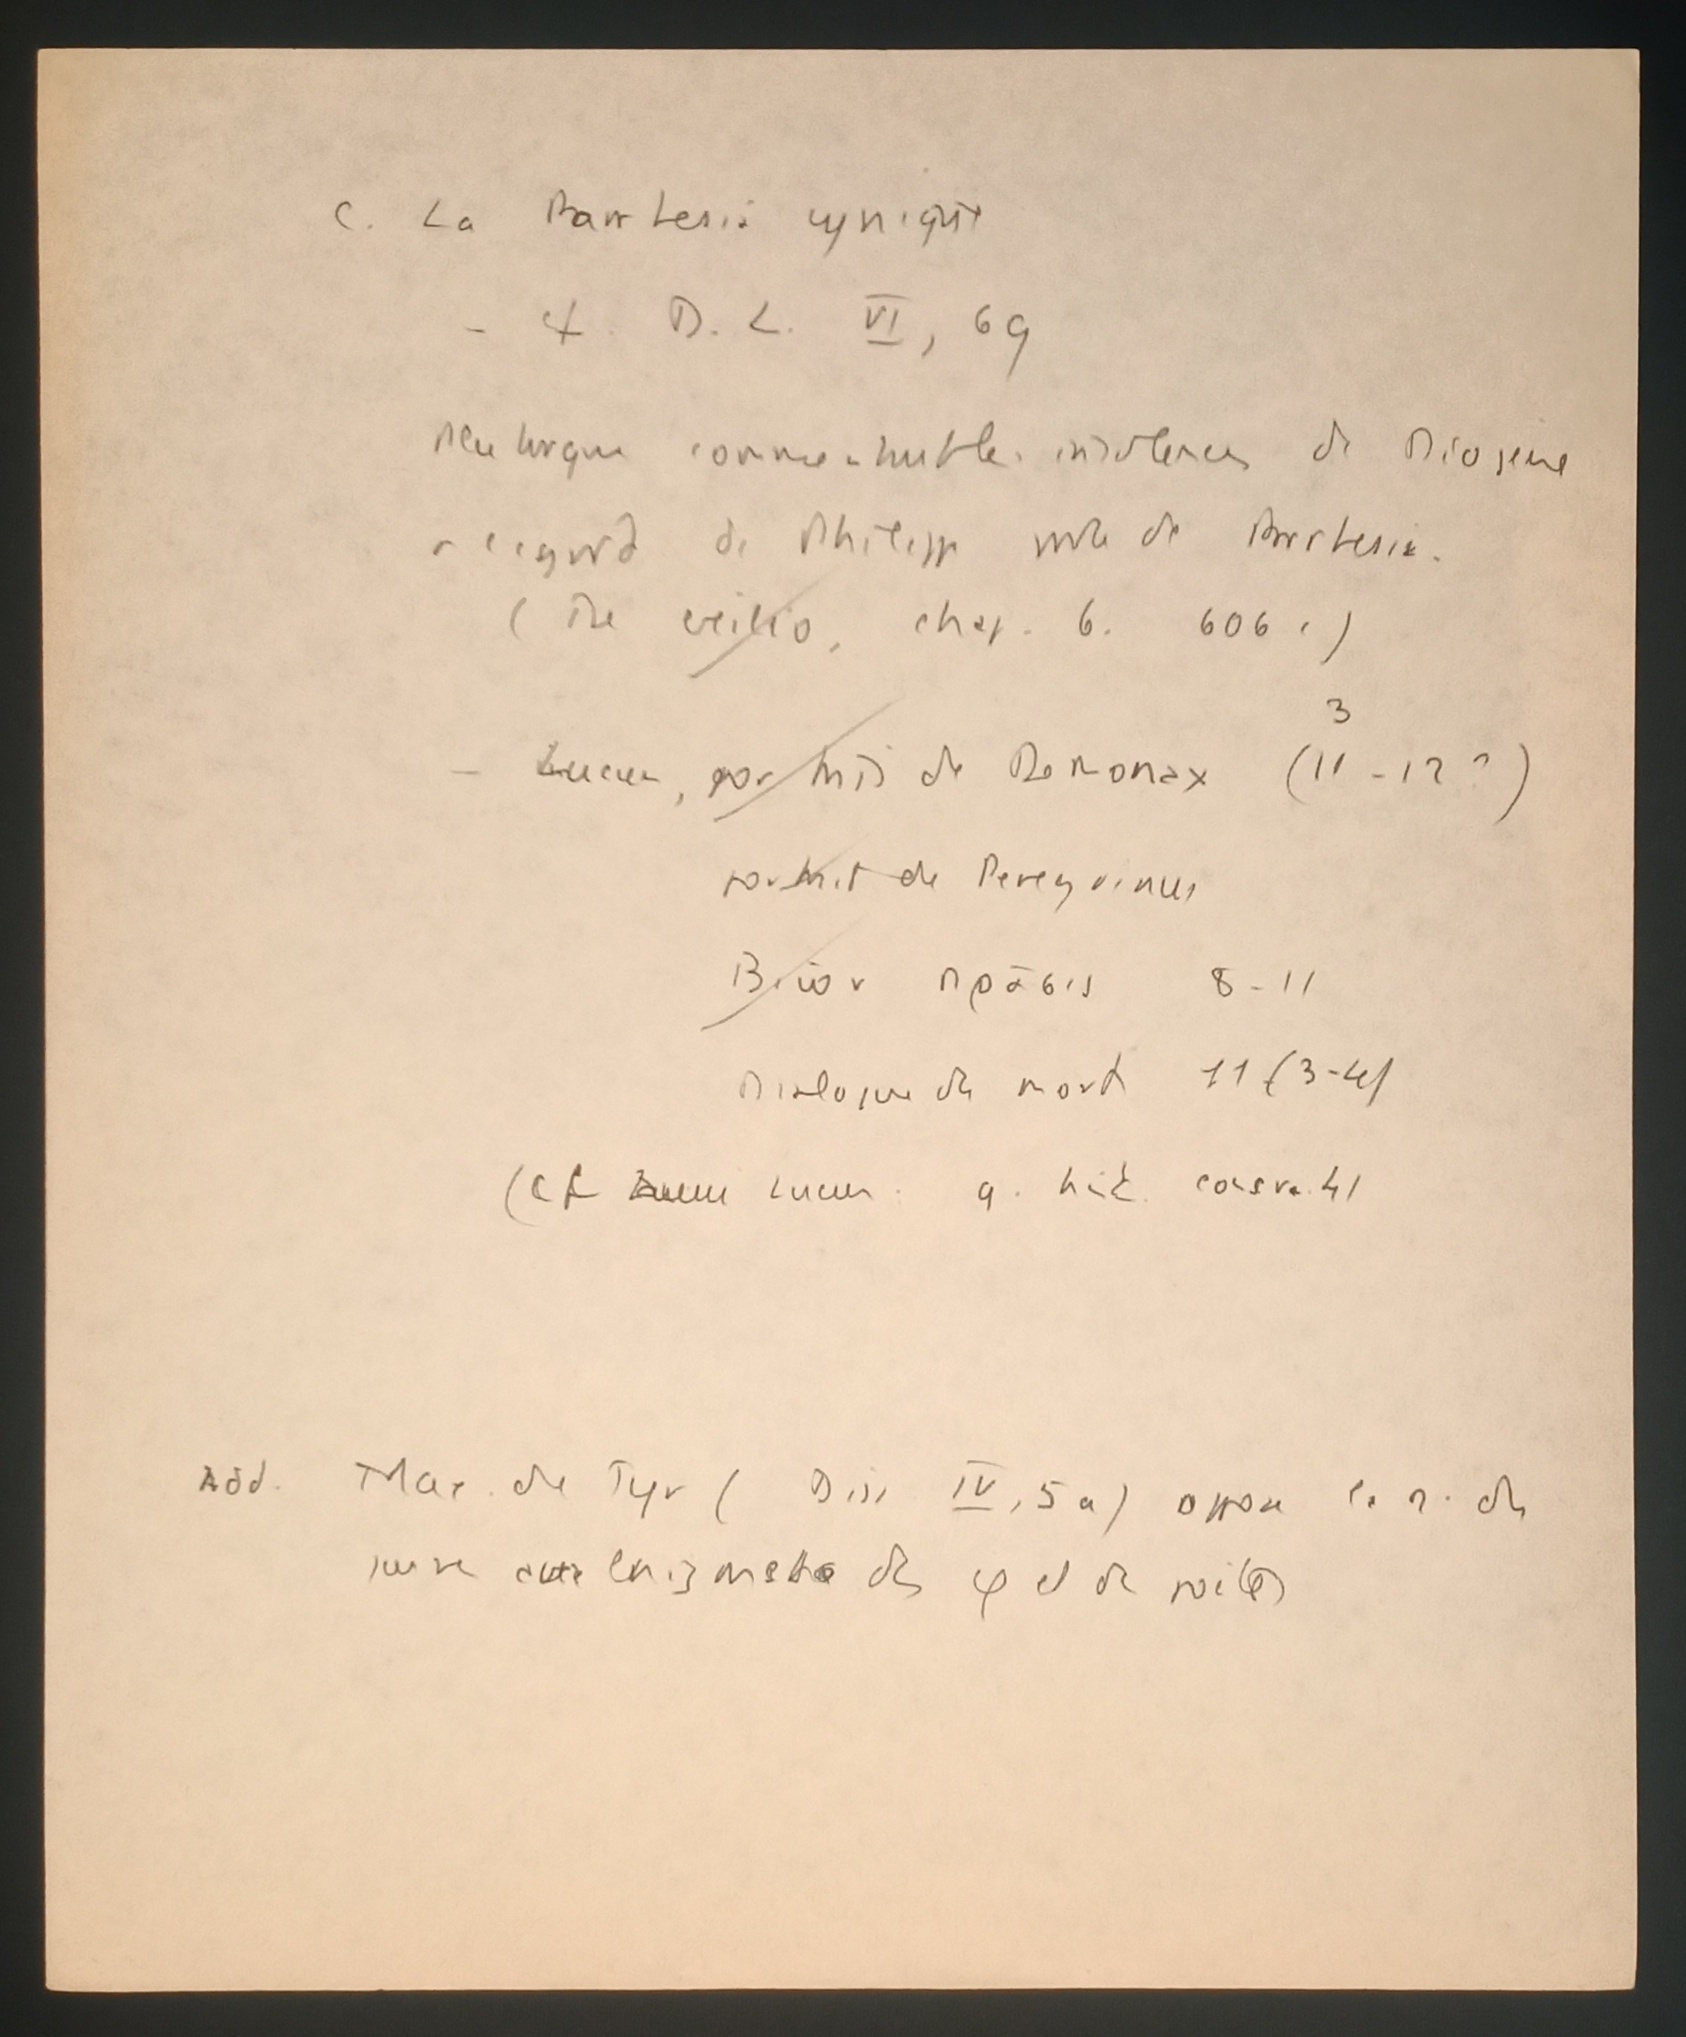 C. La Parrhesia cynique
- cf. D. L. VI, 69
Plutarque commentant les insolences de Diogène
à l'égard de Philippe parle de Parrhesia.
(De exilio, chap. 6. 606 c)
3
- Lucien, portrait de Demonax (11-12 ?)
portrait de Peregrinus
Βίων πρᾶσις 8-11
Dialogue des morts 11 (3-4)
(cf Lucien q. hist. conscr. 41
Add. Max. de Tyr ( Diss IV, 5a) oppose la π. des
aux des φ et des poètes